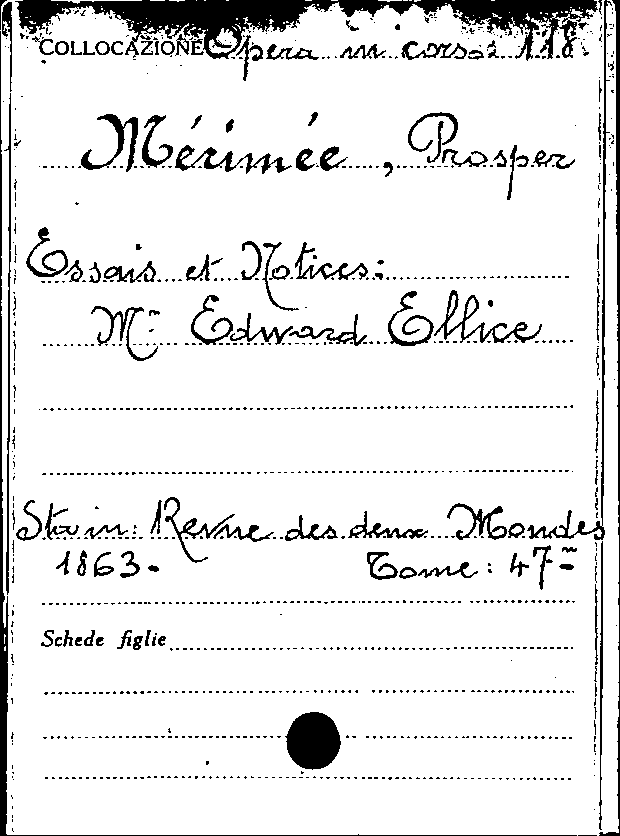 COLLOCAZIONE Opera in corso: 118.
Mérimée, Prosper
Essais et Notices:
Mr Edward Ellice
Sta in: Revue des deux Mondes
1863. Tome: 47me
Schede figlie